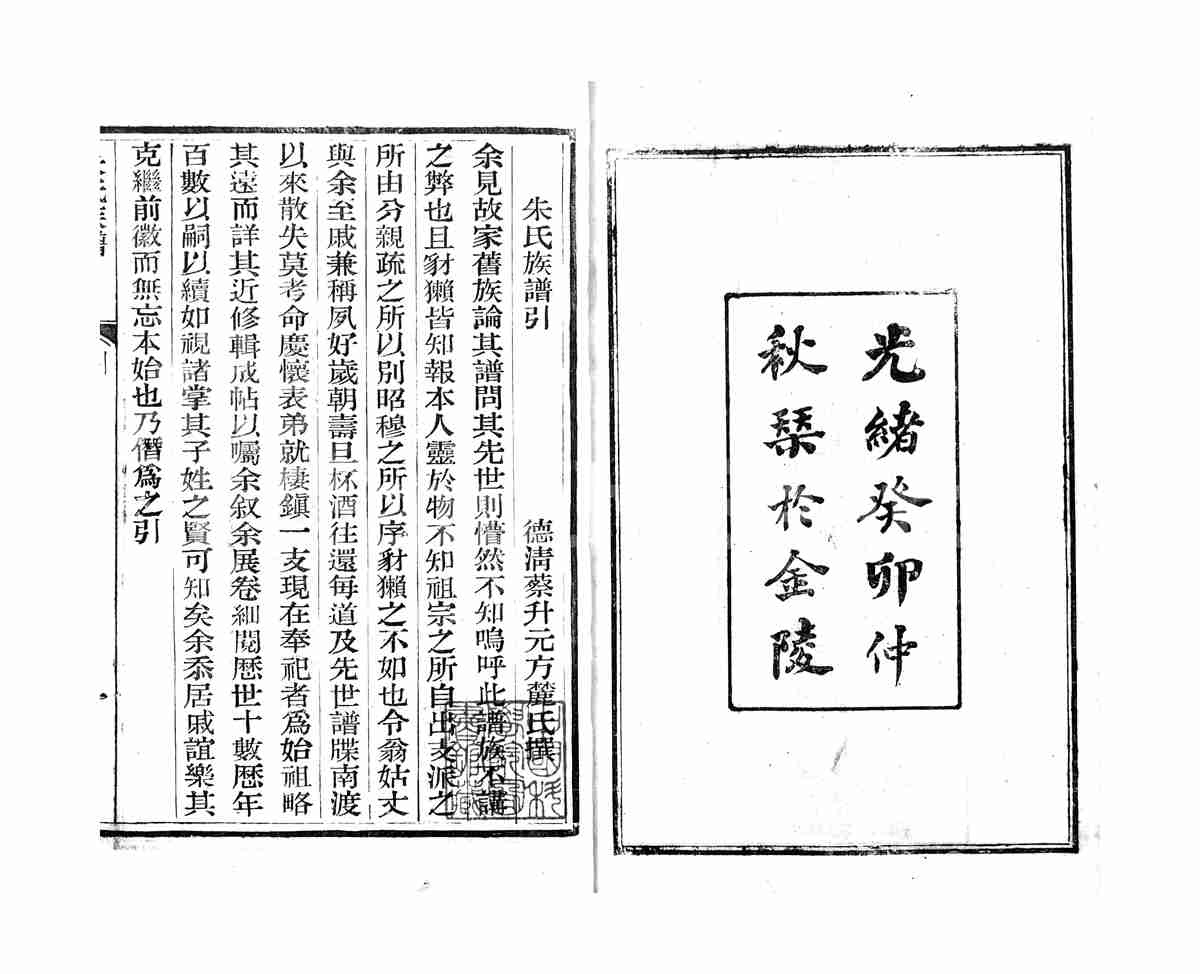 光緒癸卯仲
秋琹於金陵
朱氏族譜引
德清蔡升元方麓氏撰
余見故家舊族論其譜問其先世則懵然不知嗚呼此譜族不講
之弊也且豺獺皆知報本人靈於物不知祖宗之所自出支派之
所由分親疏之所以別昭穆之所以序豺獺之不如也令翁姑丈
與余至戚兼稱夙好歲朝壽旦杯酒往還每道及先世譜牒南渡
以來散失莫考命慶懷表弟就棲鎮一支現在奉祀者爲始祖略
其遠而詳其近修輯成帖以囑余叙余展卷細閱歷世十數歷年
百數以嗣以續如視諸掌其子姓之賢可知矣余忝居戚誼樂其
克繼前徽而無忘本始也乃僭爲之引